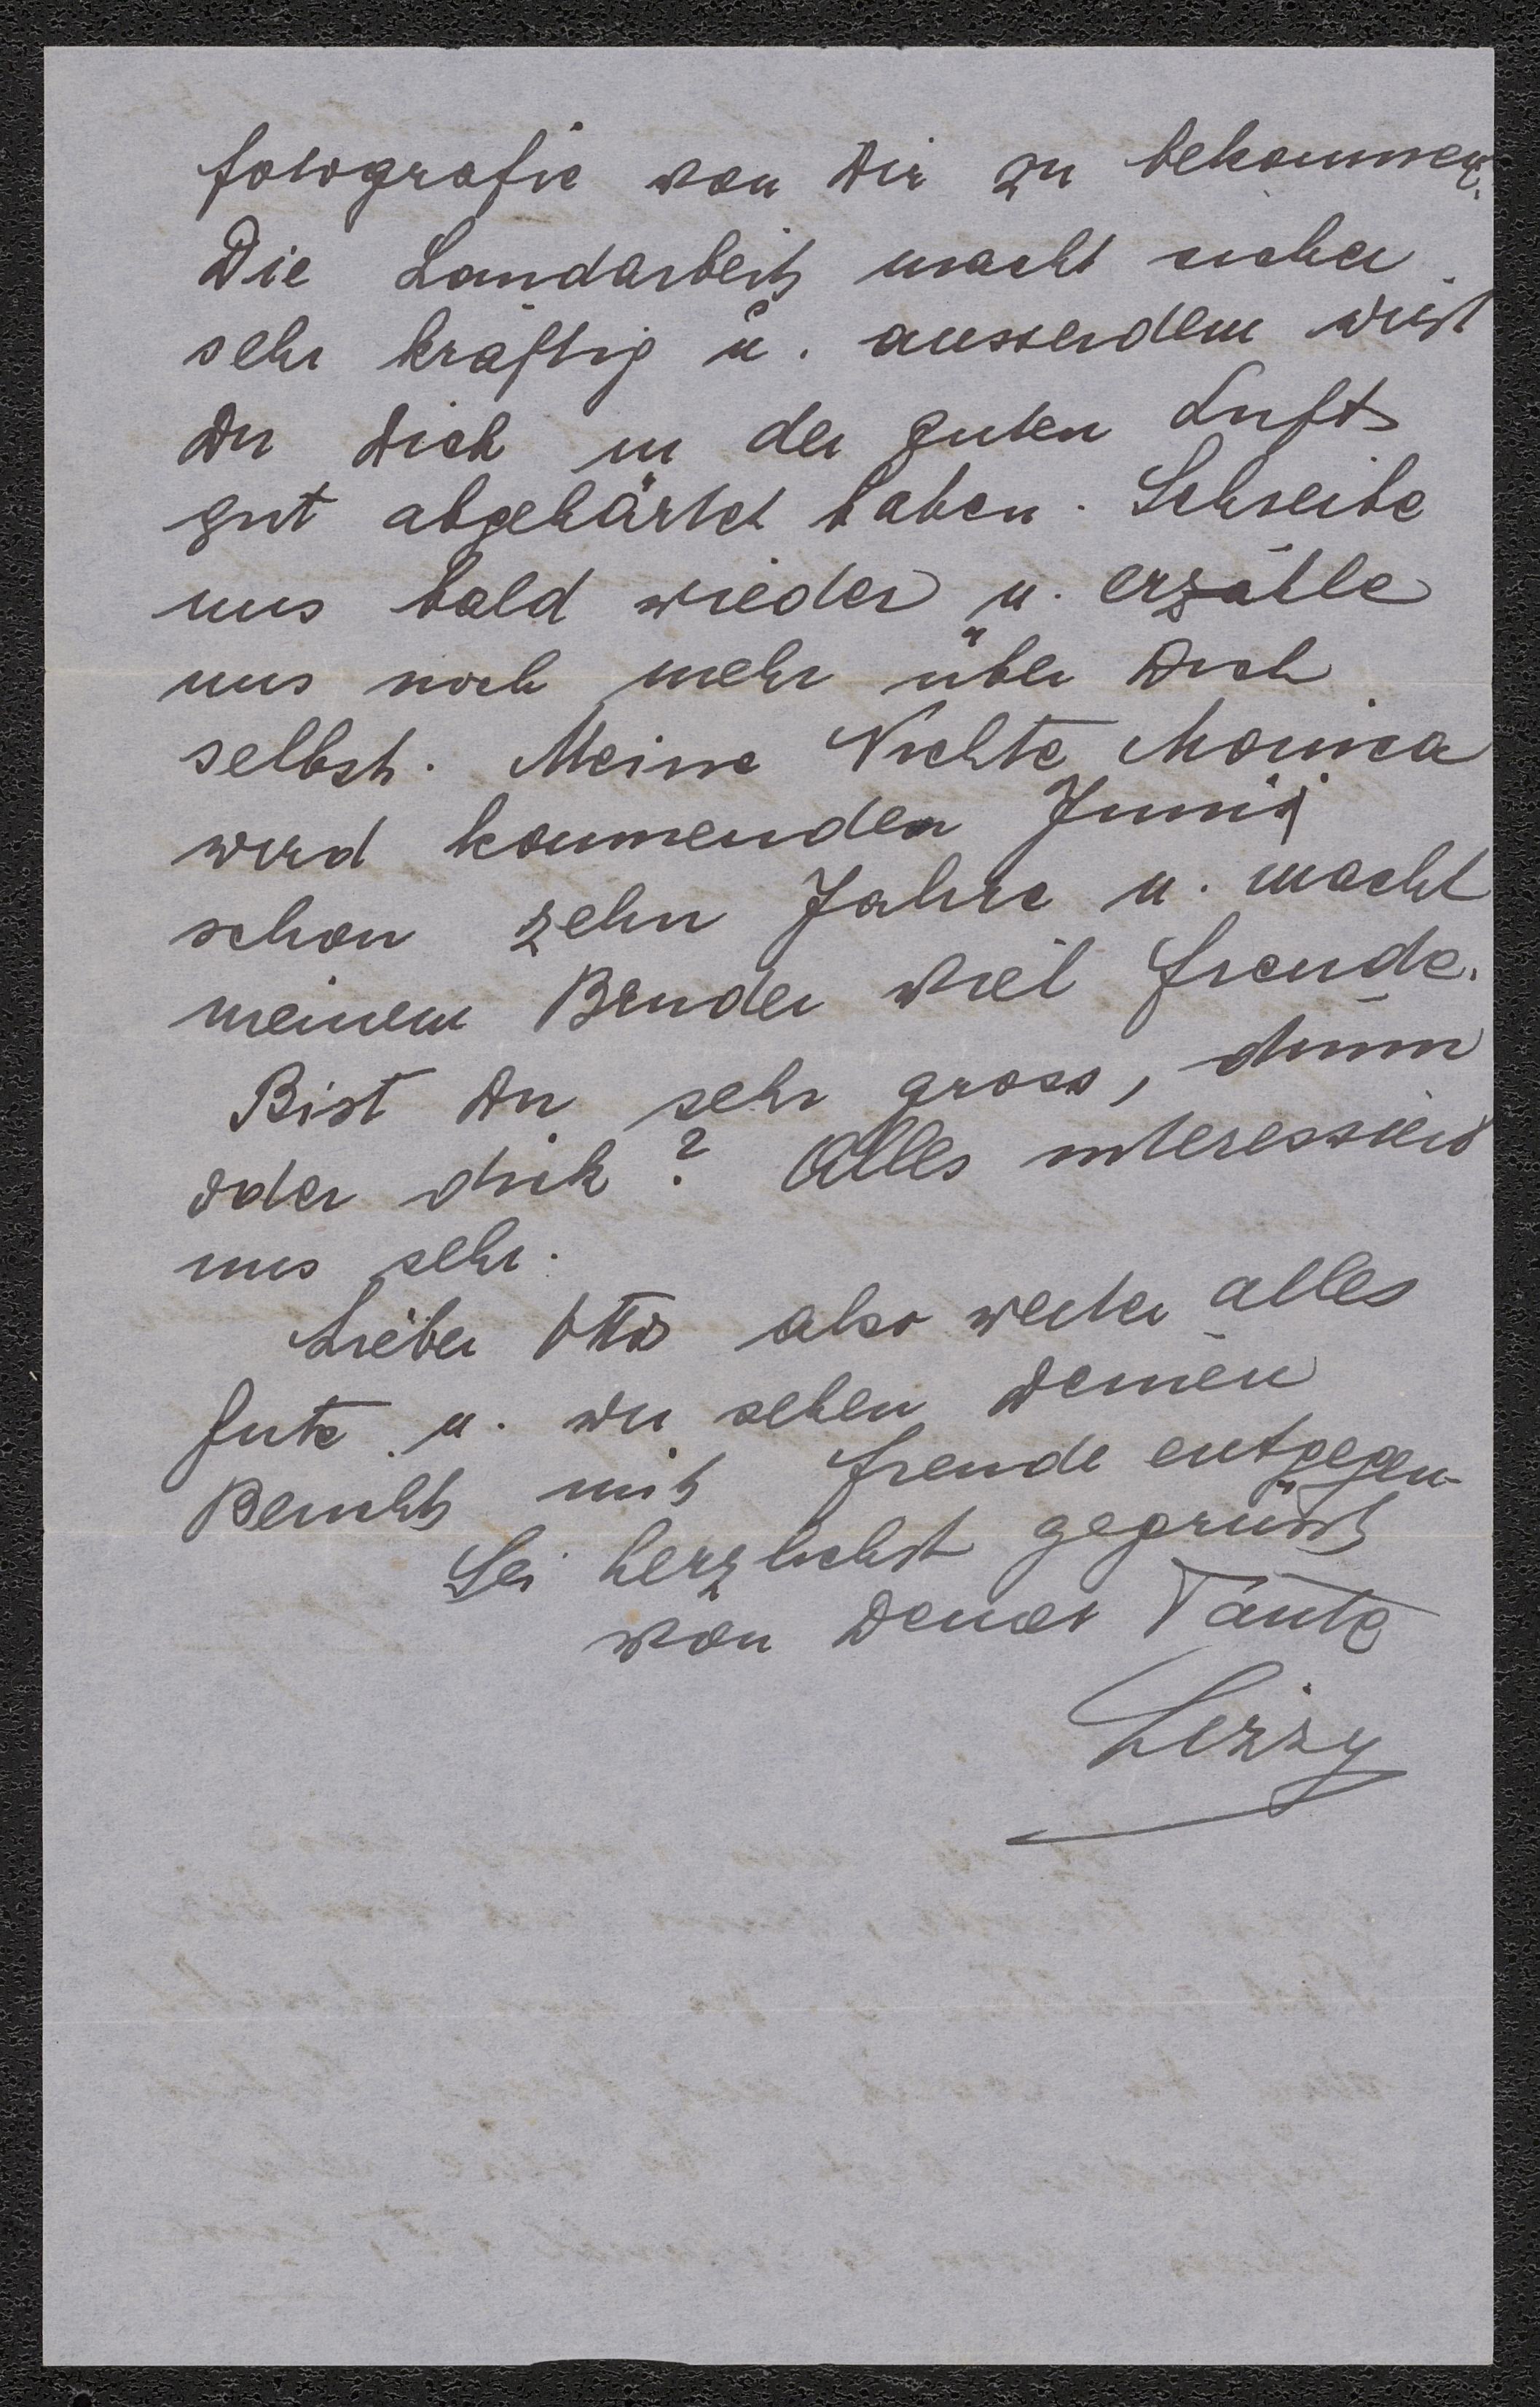 fotografie von Dir zu bekommen.
Die Landarbeit macht sicher
sehr kräftig u. ausserdem wirst
Du Dich in der guten Luft
gut abgehärtet haben. Schreibe
uns bald wieder u. erzähle
uns noch mehr über Dich
selbst. Meine Nichte Monica
wird kommenden Juni
schon zehn Jahre u. macht
meinem Bruder viel Freude.
Bist Du sehr gross, dünn
oder dick? Alles interessiert
uns sehr.
Lieber Otto also weiter alles
Gute u. wir sehen Deinen
Bericht mit Freude entgegen-
Sei herzlichst gegrüsst
von Deiner Tante
Lizzy